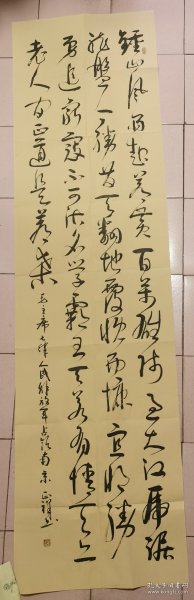 鍾山风雨起苍黄百万雄师过大江虎踞
龙盘今胜昔天翻地覆慨而慷宜将剩
勇追穷寇不可沽名学霸王天若有情天亦
老人间正道是沧桑
毛主席七律人民解放军占领南京